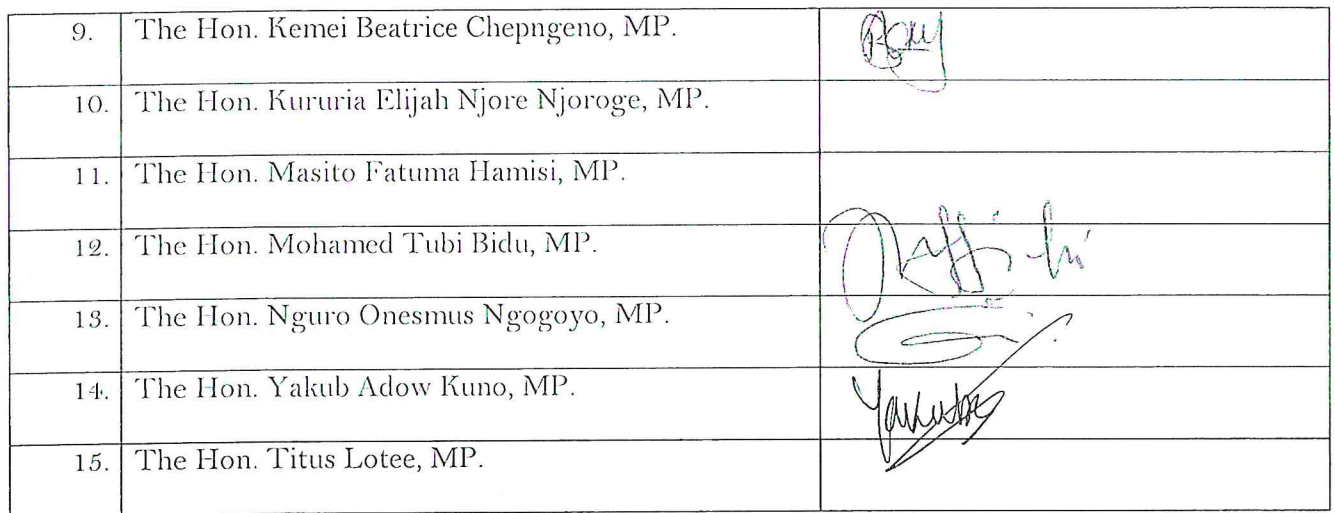 9. The Hon. Kemei Beatrice Chepngeno, MP.
10. The Hon. Kururia Elijah Njore Njoroge, MP.
11. The Hon. Masito Fatuma Hamisi, MP.
12. The Hon. Mohamed Tubi Bidu, MP.
13. The Hon. Nguro Onesmus Ngogoyo, MP.
14. The Hon. Yakub Adow Kuno, MP.
15. The Hon. Titus Lotee, MP.